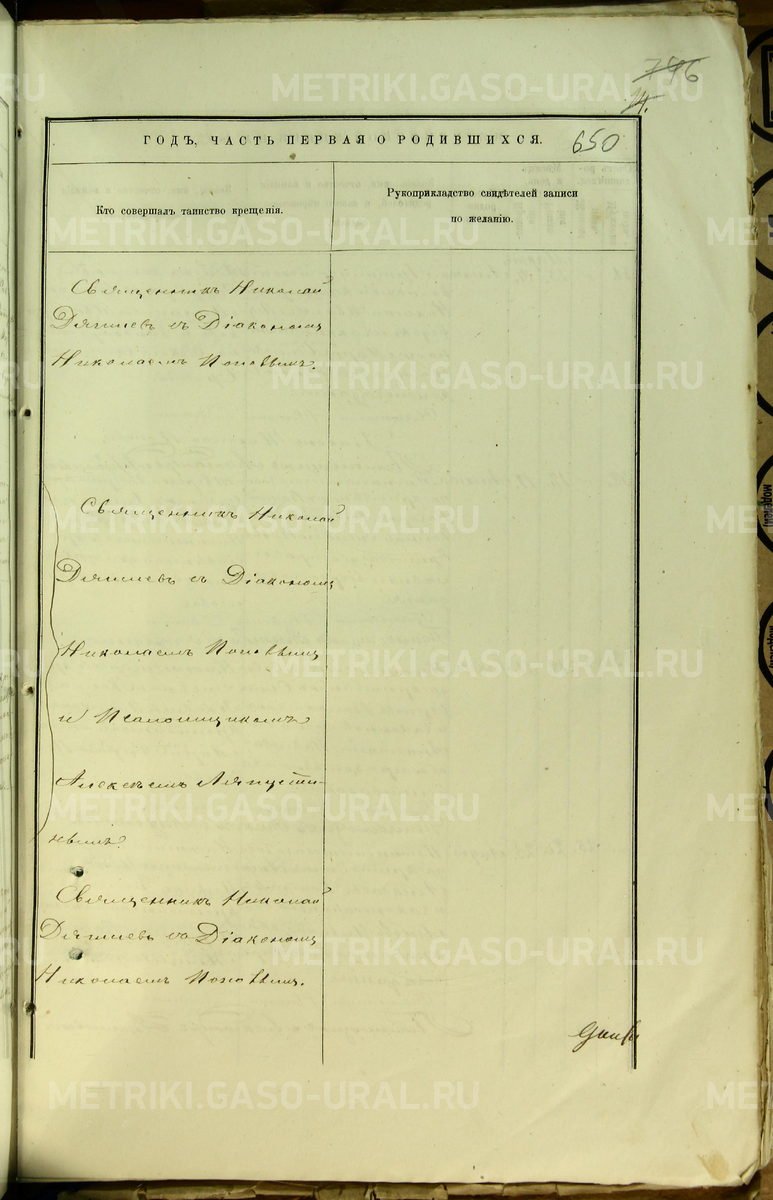 746
14.
ГОДЪ, ЧАСТЬ ПЕРВАЯ О РОДИВШИХСЯ.
650
Кто совершалъ таинство крещенія.
Рукоприкладство свидѣтелей записи
по желанію.
Священникъ Николай
Дягилевъ съ Діакономъ
Николаемъ Поповымъ.
Священникъ Николай
Дягилевъ съ Діакономъ
Николаемъ Поповымъ
и Псаломщикомъ
Алексѣемъ Ляпусти-
нымъ.
Священникъ Николай
Дягилевъ съ Діакономъ
Николаемъ Поповымъ.
METRIKI.GASO-URAL.RU